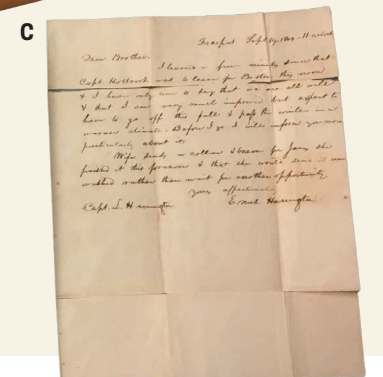 C
Freeport Sept 14, 11 o'clock
Dear Brother
I learned a few minutes since that
Capt. Holbrook was to leave for Boston this noon
& I have only time to say that we are all well
& that I am very much improved but expect to
have to go off this fall & pass the winter in a
warmer climate. Before I go I will inform you more
particularly about it.
Wife sends a collar & bosom for Jane she
finished it this forenoon & that she would send it un
washed rather than wait for another opportunity
yours affectionately
Capt. S. Harrington Enoch Harrington